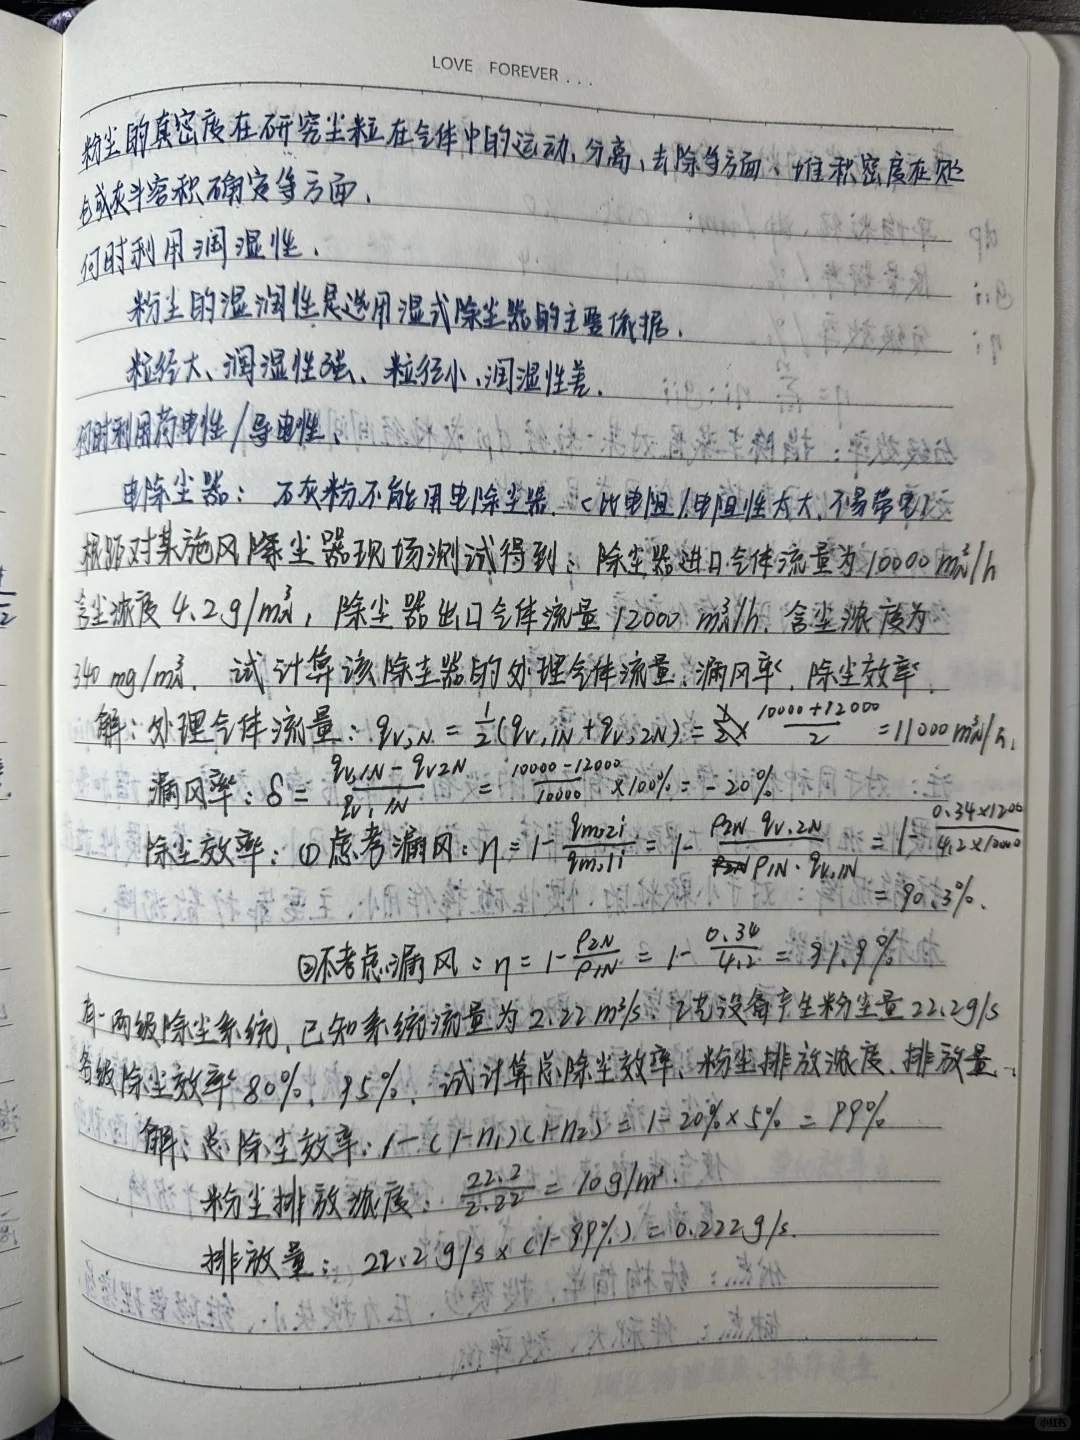 LOVE FOREVER...
粉尘的真密度在研究尘粒在气体中的运动、分离、去除等方面、堆积密度在贮
仓或灰斗容积确定等方面.
何时利用润湿性.
粉尘的湿润性是选用湿式除尘器的主要依据.
粒径大、润湿性强、粒径小、润湿性差.
何时利用荷电性/导电性.
电除尘器: 石灰粉不能用电除尘器. (比电阻/电阻性太大、不易带电)
根据对某旋风除尘器现场测试得到: 除尘器进口气体流量为10000 m³N/h
含尘浓度 4.2g/m³N, 除尘器出口气体流量 12000 m³N/h. 含尘浓度为
340 mg/m³N. 试计算该除尘器的处理气体流量、漏风率、除尘效率.
解: 处理气体流量: qv,N = 1/2(qv,1N+qv,2N) = (10000+12000)/2 = 11000 m³N/h.
漏风率: δ = (qv,1N - qv2N)/qv,1N = (10000-12000)/10000 ×100% = -20%
除尘效率: ① 虑考漏风: η = 1- qm,2i/qm,1i = 1- ρ2N qv,2N/ρ1N·qv,1N = 1- 0.34×1200/4.2×10000
= 90.3%.
②不考虑漏风: η = 1- ρ2N/ρ1N = 1- 0.34/4.2 = 91.9%
有一两级除尘系统, 已知系统流量为 2.22 m³/s. 工艺设备产生粉尘量 22.2g/s
各级除尘效率 80%、95%. 试计算总除尘效率、粉尘排放浓度、排放量.
解: 总除尘效率: 1-(1-η1)(1-η2) = 1-20%×5% = 99%
粉尘排放浓度: 22.2/2.22 = 10g/m³.
排放量: 22.2g/s×(1-99%) = 0.222g/s.